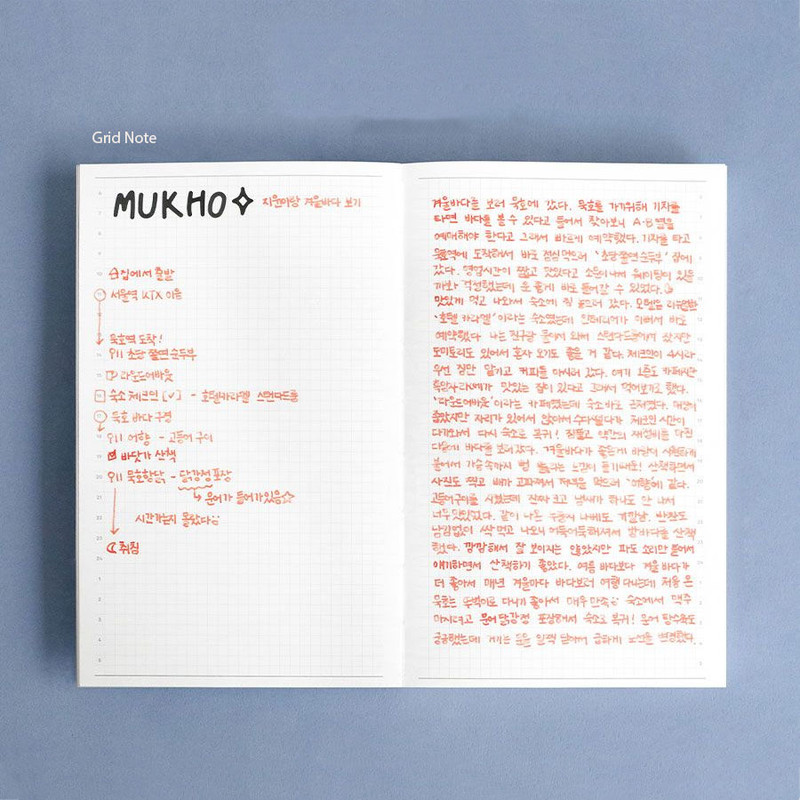 Grid Note
MUKHO 지원이랑 겨울바다 보기
집에서 출발
서울역 KTX 이동
묵호역 도착!
초당쫄면순두부
라운드어바웃
숙소 체크인 [✓] - 호텔카라멜 스탠다드룸
묵호 바다 구경
어향 - 고등어 구이
바닷가 산책
묵호항닭 - 닭강정 포장
↳ 문어가 들어가있음☆
시간가는지 몰랐다
취침
겨울바다를 보러 묵호에 갔다. 묵호를 가기위해 기차를
타면 바다를 볼 수 있다고 들어서 찾아보니 A·B열을
예매해야 한다고 그래서 바르게 예약했다. 기차를 타고
묵호역에 도착해서 바로 점심먹으러 '초당쫄면순두부' 집에
갔다. 영업시간이 짧고 맛있다고 소문이 나서 웨이팅이 있을
까봐 걱정했는데 운 좋게 바로 들어갈 수 있었다.
맛있게 먹고 나와서 숙소에 짐 갔다.
'호텔 카라멜'이라는 숙소였는데 인테리어가 이뻐서 바로
예약했다 나는 친구랑 둘이서 와서 스탠다드룸에서 잤지만
도미토리도 있어서 혼자 오기도 좋을 거 같다. 체크인이 4시라
우선 짐만 맡기고 커피를 마시러 갔다. 여기 카페지만
맛있는 집이 있다고 그래서 먹어보기로 했다.
'라운드어바웃'이라는 카페였는데 숙소 바로 근처였다.
좋았지만 자리가 있어서 앉아서 수다떨다가 체크인 시간이
다가와서 다시 숙소로 복귀! 짐풀고 약간의 재정비를 다진
다음에 바다를 보러 갔다. 겨울바다가 좋은게 바람이 시원하게
불어서 가슴속까지 뻥 뚫리는 느낌이 들기때문! 산책하면서
사진도 찍고 배가 고파져서 저녁을 먹으러 '어향'에 갔다.
고등어구이를 시켰는데 진짜 크고 냄새가 하나도 안 나서
너무 맛있었다. 같이 나온 반찬도
남김없이 싹 먹고 나오니 어둑어둑해져서 밤바다를 산책
했다. 깜깜해서 잘 보이지는 않았지만 파도 소리만 들어서
얘기하면서 산책하기 좋았다. 여름 바다보다 겨울 바다가
더 좋아서 매년 겨울마다 바다보러 여행 다니는데 처음 온
묵호는 뚜벅이로 다니기 좋아서 매우 만족 숙소에서 맥주
마시려고 문어닭강정 포장해서 숙소로 복귀! 문어 탕수육도
궁금했는데